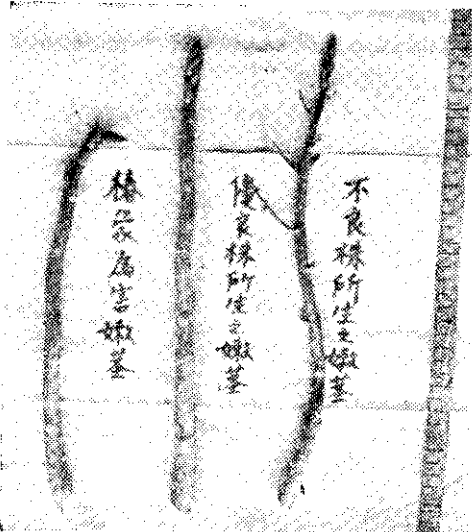 不良株所生之嫩莖
優良株所生之嫩莖
椿象為害嫩莖